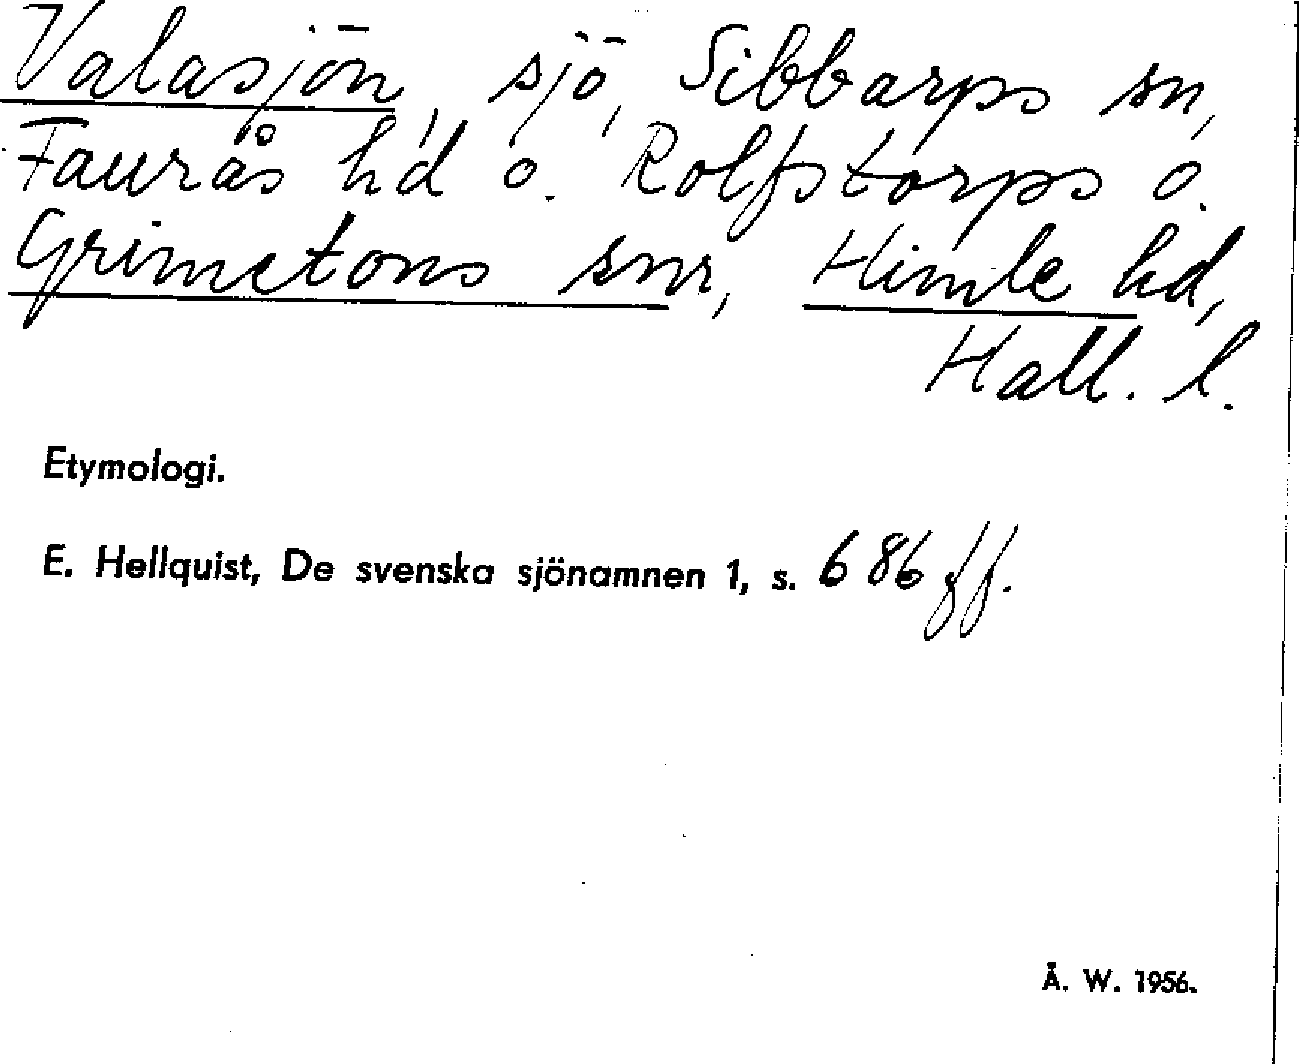 Valasjön, sjö, Sibbarps sn,
Faurås hd o. Rolfstorps o.
Grimetons snr, Himle hd,
Hall. l.
Etymologi.
E. Hellquist, De svenska sjönamnen 1, s. 686 ff.
Å. W. 1956.